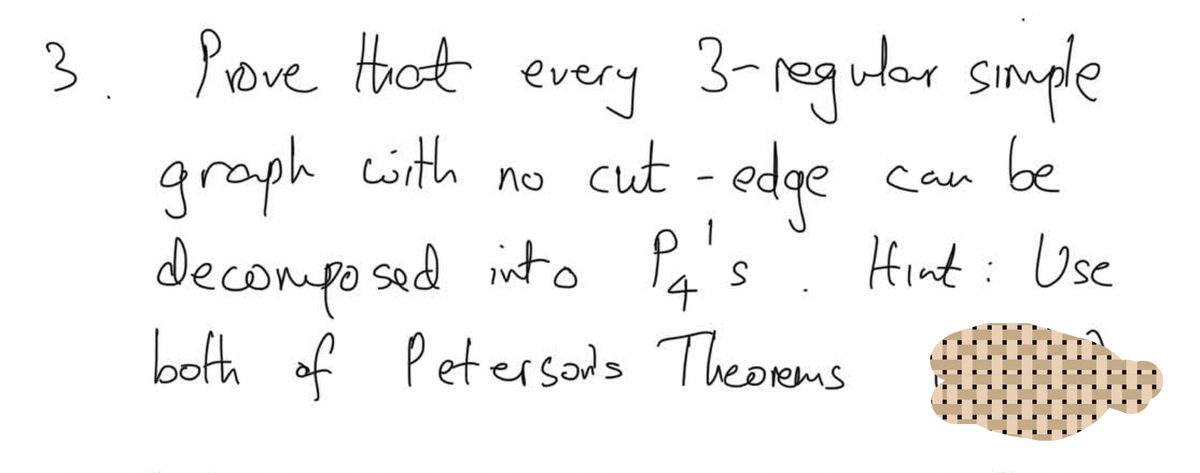 3. Prove that every 3-regular simple
graph with no cut-edge can be
decomposed into P₄'s. Hint: Use
both of Peterson's Theorems